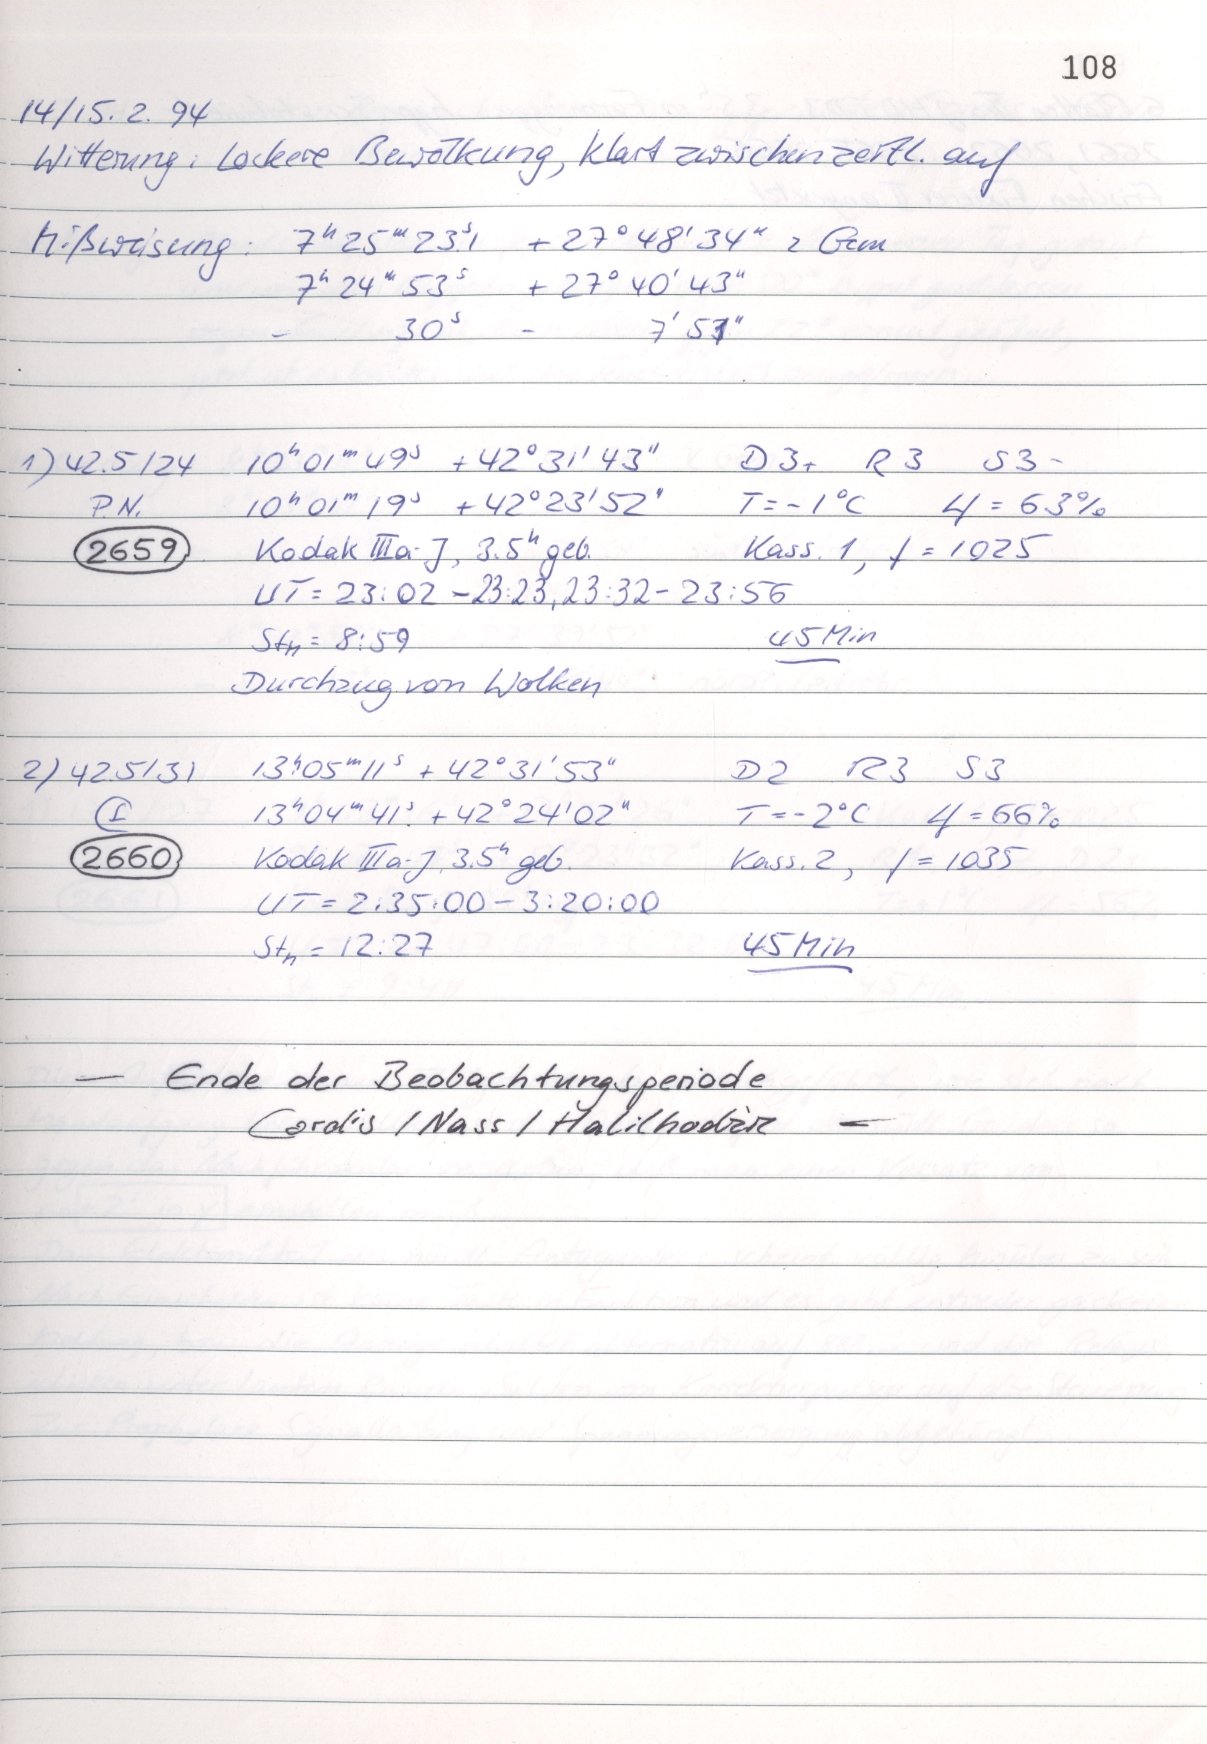 108
14/15. 2. 94
Witterung: Lockere Bewölkung, klart zwischenzeitl. auf
Mißweisung: 7h 25m 23s.1 + 27° 48' 34" ι Gem
7h 24m 53s + 27° 40' 43"
- 30s - 7' 51"
1) 42.5/24 10h 01m 49s + 42° 31' 43" D 3+ R 3 S 3-
P.N. 10h 01m 19s + 42° 23' 52" T = -1°C φ = 63%
2659 Kodak IIIa-J, 3.5h geb. Kass. 1, f = 1025
UT = 23:02 - 23:23, 23:32 - 23:56
Stn = 8:59 45 Min
Durchzug von Wolken
2) 42.5/31 13h 05m 11s + 42° 31' 53" D2 R3 S3
I 13h 04m 41s + 42° 24' 02" T = -2°C φ = 66%
2660 Kodak IIIa-J, 3.5h geb. Kass. 2, f = 1035
UT = 2:35:00 - 3:20:00
Stn = 12:27 45 Min
— Ende der Beobachtungsperiode
/ Nass / —